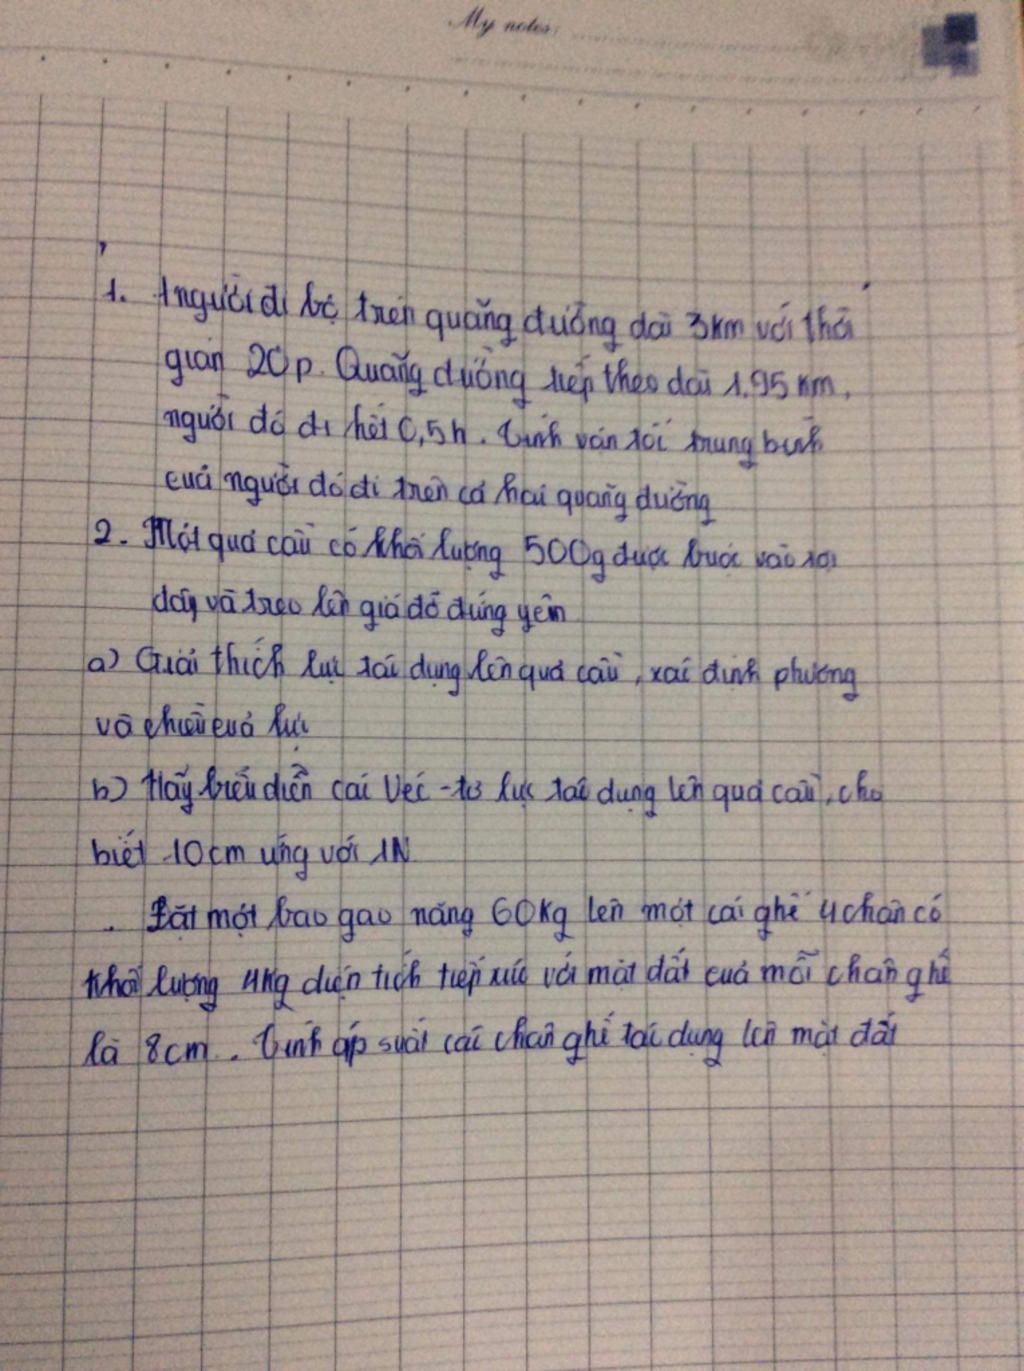 My notes:
1. 1 người đi bộ trên quãng đường dài 3km với thời
gian 20p. Quãng đường tiếp theo dài 1.95 km,
người đó đi hết 0,5h. Tính vận tốc trung bình
của người đó đi trên cả hai quãng đường
2. Một quả cầu có khối lượng 500g được buộc vào sợi
dây và treo lên giá đỡ đứng yên
a) Giải thích lực tác dụng lên quả cầu, xác định phương
và chiều của lực
b) Hãy biểu diễn các véc-tơ lực tác dụng lên quả cầu, cho
biết 10cm ứng với 1N
. Đặt một bao gạo nặng 60kg lên một cái ghế 4 chân có
khối lượng 4kg diện tích tiếp xúc với mặt đất của mỗi chân ghế
là 8cm. Tính áp suất các chân ghế tác dụng lên mặt đất